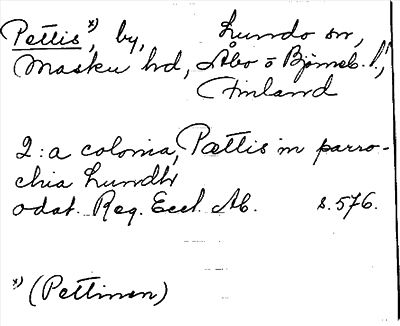 Pettis *), by, Lundo sn,
Masku hd, Åbo o Björneb. l.,
Finland
2: a colonia, Pættis in parro-
chia Lundh
odat. Reg. Eccl. Ab. s. 576.
*) (Pettinen)